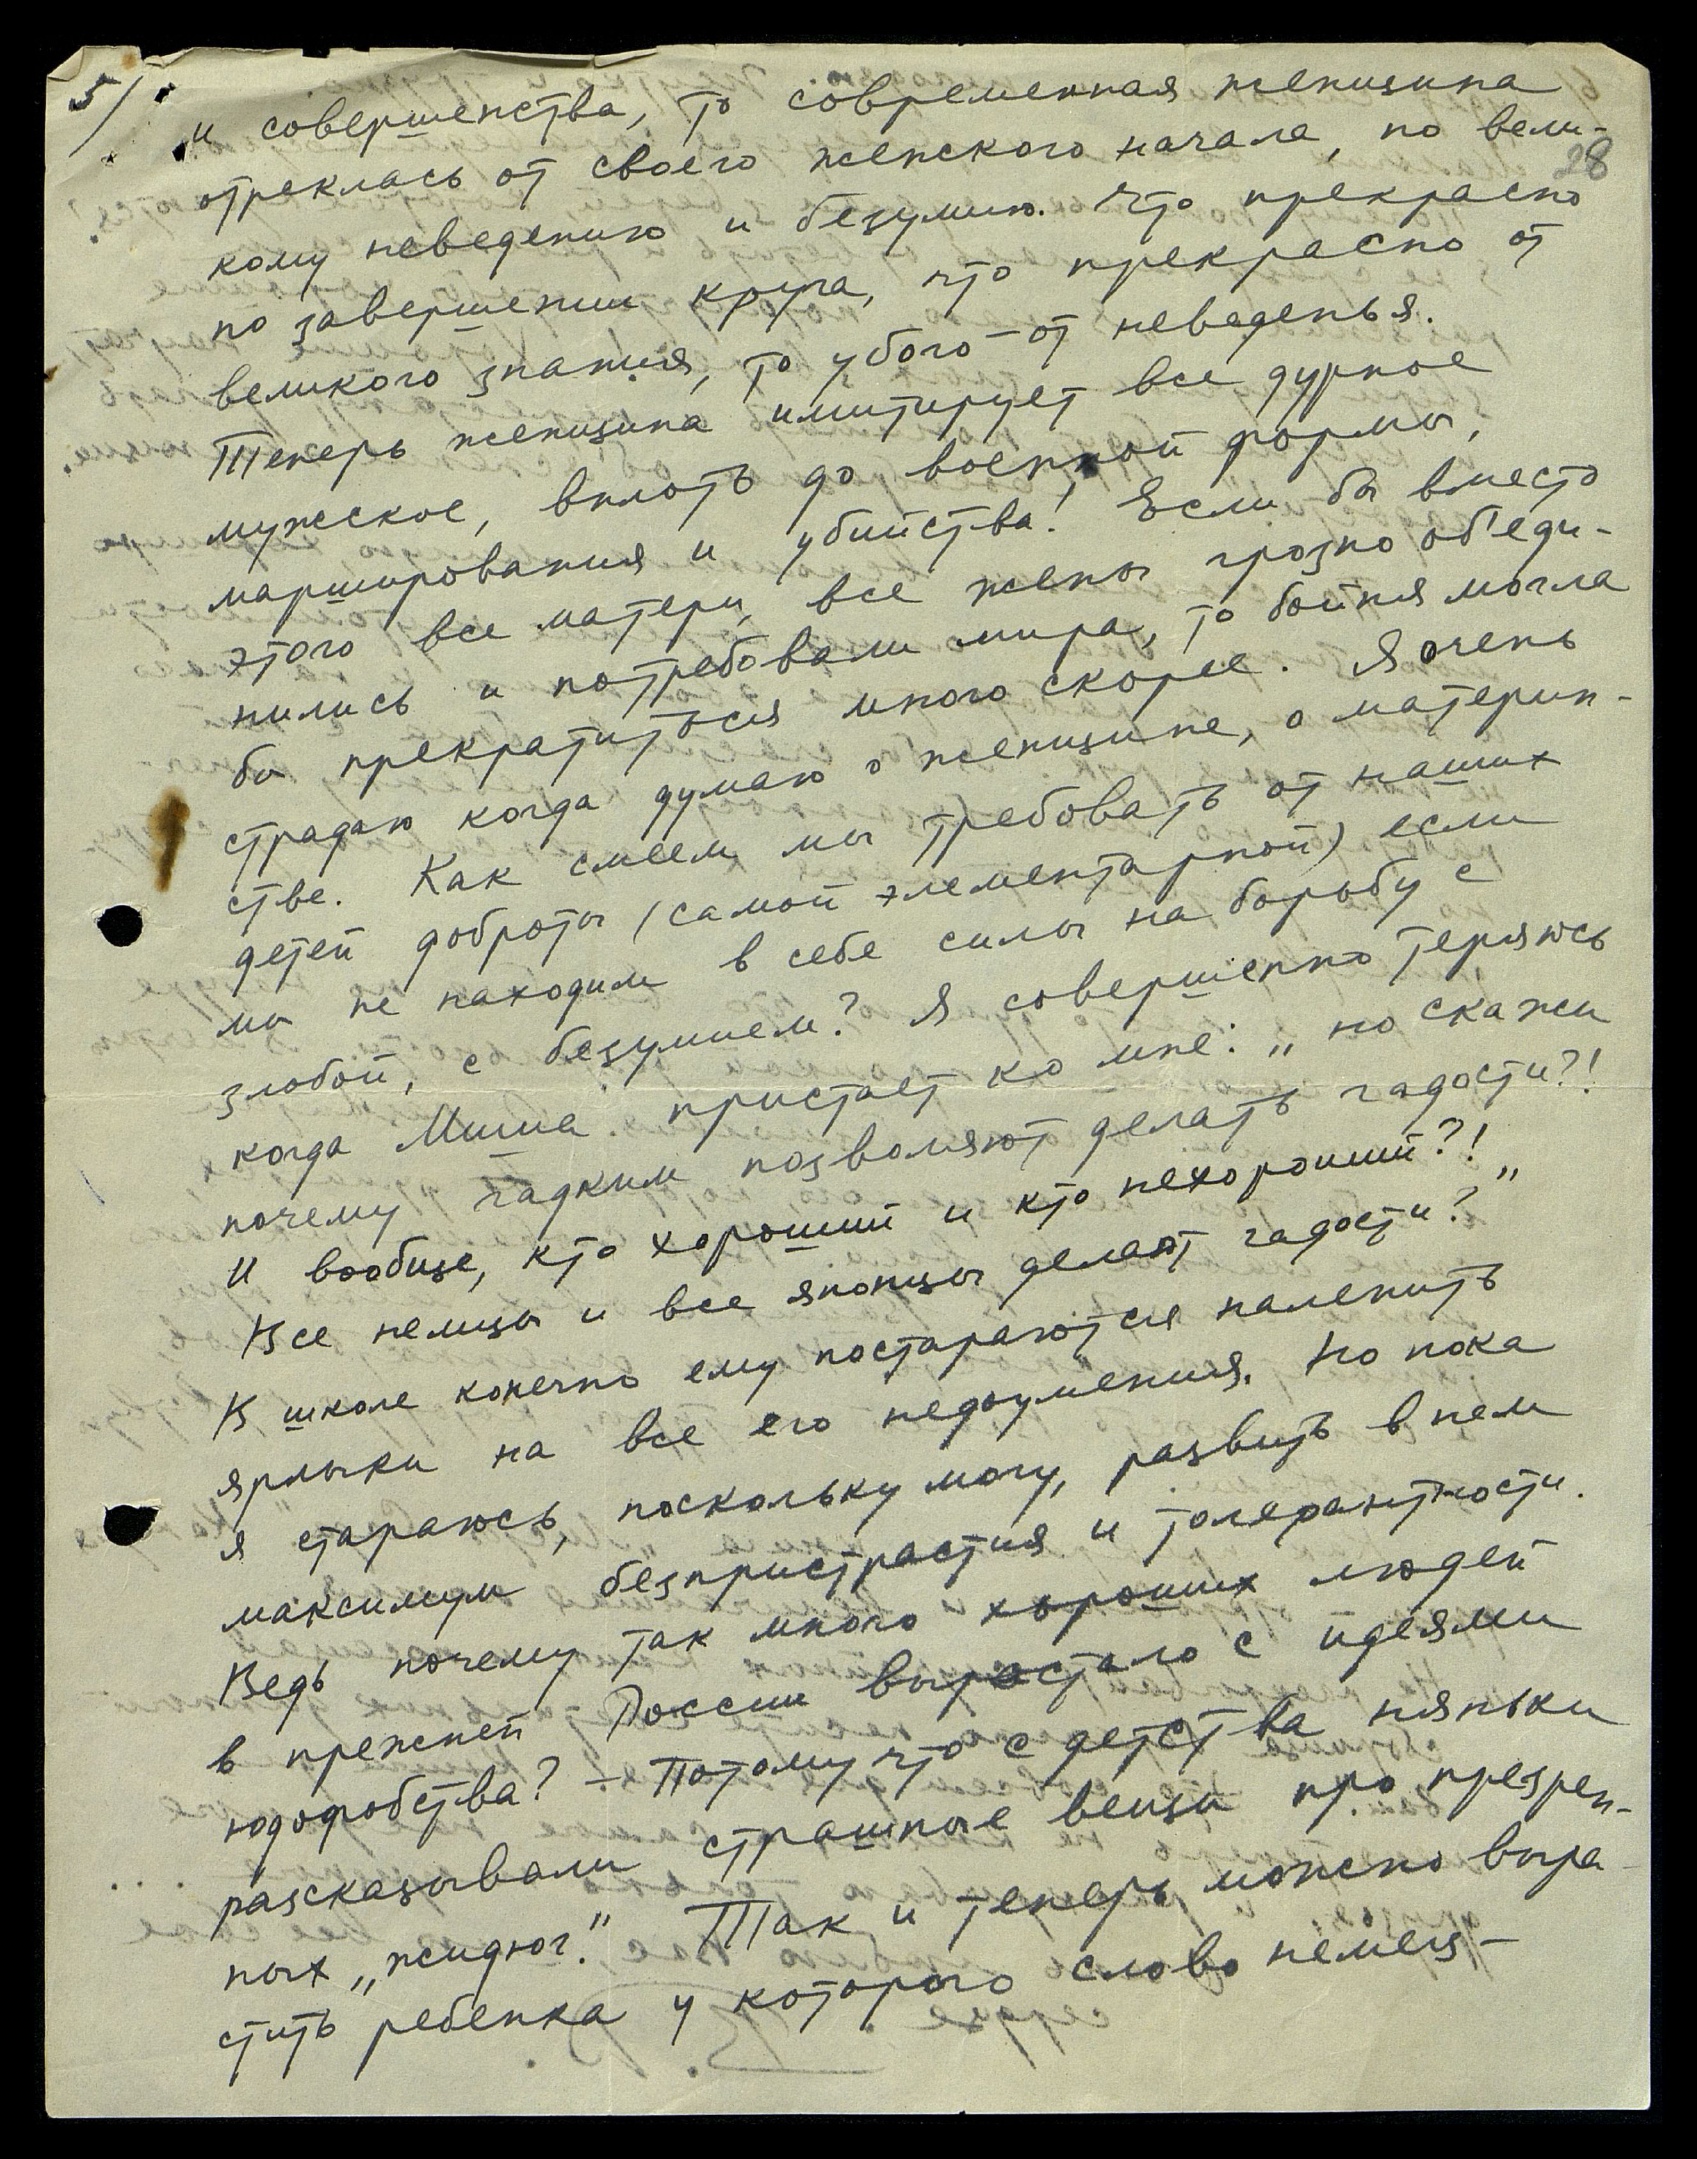 5/
и совершенства, то современная женщина
28
отреклась от своего женского начала, по вели-
кому неведению и безумию. Что прекрасно
по завершении круга, что прекрасно от
великого знания, то убого – от неведенья.
Теперь женщина имитирует все дурное
мужское, вплоть до военной формы,
марширования и убийства! Если бы вместо
этого все матери, все жены грозно об'еди-
нились и потребовали мира, то бойня могла
бы прекратиться много скорее. Я очень
страдаю когда думаю о женщине, о материн-
стве. Как смеем мы требовать от наших
детей доброты (самой элементарной) если
мы не находим в себе силы на борьбу с
злобой, с безумием? Я совершенно теряюсь
когда Миша пристает ко мне: „но скажи
почему гадким позволяют делать гадости?!
И вообще, кто хороший и кто нехороший?!
Все немцы и все японцы делают гадости?"
В школе конечно ему постараются налепить
ярлыки на все его недоумения. Но пока
я стараюсь, поскольку могу, развить в нем
максимум безпристрастия и толерантности.
Ведь почему так много хороших людей
в прежней России выростало с идеями
юдофобства? – Потому что с детства няньки
разсказывали страшные вещи про презрен-
ных „жидюг." Так и теперь можно выра-
стить ребенка у которого слово немец –